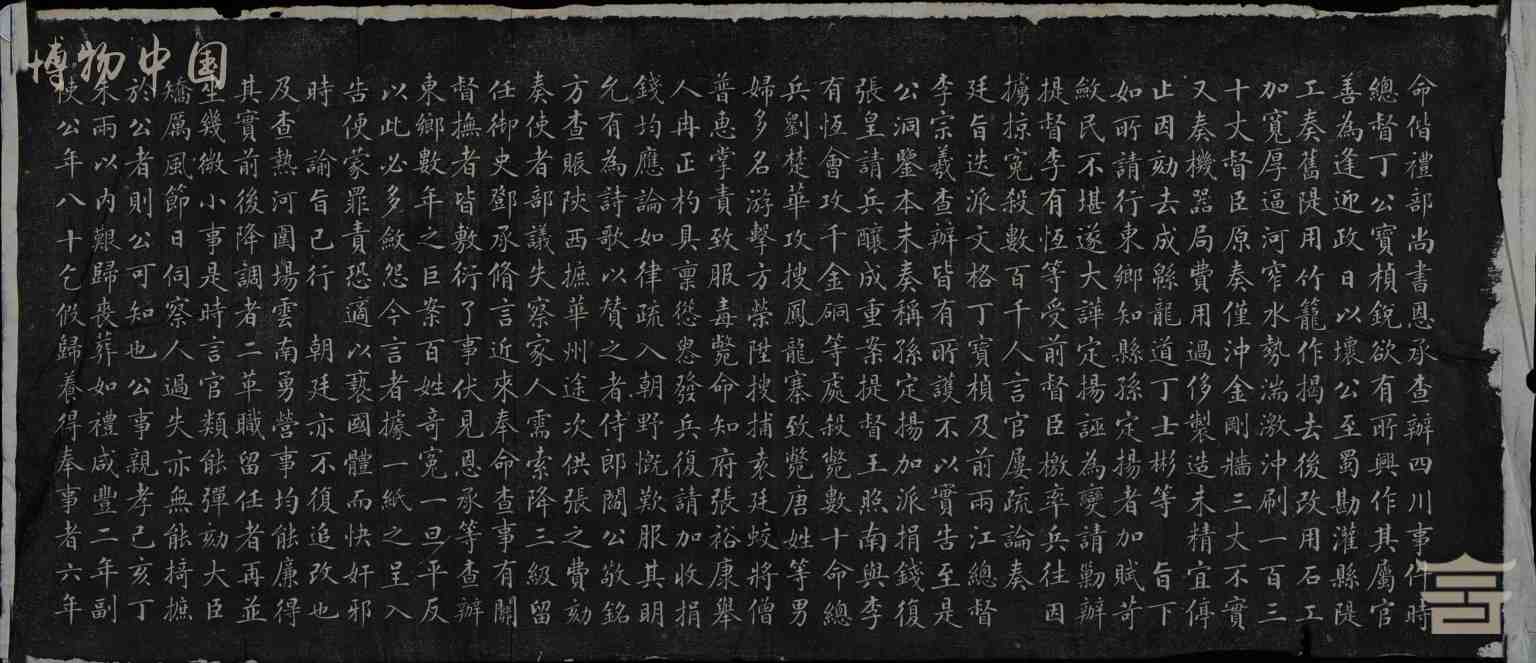 博物中国
命偕禮部尚書恩承查辦四川事件時
總督丁公寶楨銳欲有所興作其屬官
善為逢迎政日以壞公至蜀勘灌縣隄
工奏舊隄用竹籠作楬去後改用石工
加寬厚逼河窄水勢湍激沖刷一百三
十丈督臣原奏僅沖金剛牆三丈不實
又奏機器局費用過侈製造未精宜停
止因劾去成緜龍道丁士彬等 旨下
如所請行東鄉知縣孫定揚者加賦苛
斂民不堪遂大譁定揚誣為變請勦辦
提督李有恆等受前督臣檄率兵往因
擄掠冤殺數百千人言官屢疏論奏
廷旨迭派文格丁寶楨及前兩江總督
李宗羲查辦皆有所護不以實告至是
公洞鑒本末奏稱孫定揚加派捐錢復
張皇請兵釀成重案提督王照南與李
有恆會攻千金硐等處殺斃數十命總
兵劉楚華攻搜鳳龍寨致斃唐姓等男
婦多名游擊方榮陞搜捕袁廷蛟將僧
普惠掌責致服毒斃命知府張裕康舉
人冉正杓具稟慫恿發兵復請加收捐
錢均應論如律疏入朝野慨歎服其明
允有為詩歌以贊之者侍郎閻公敬銘
方查賑陝西摭華州途次供張之費劾
奏使者部議失察家人需索降三級留
任御史鄧承脩言近來奉命查事有關
督撫者皆敷衍了事伏見恩承等查辦
東鄉數年之巨案百姓奇冤一旦平反
以此必多斂怨今言者據一紙之呈入
告便蒙罪責恐適以褻國體而快奸邪
時 諭旨已行 朝廷亦不復追改也
及查熱河圍場雲南勇營事均能廉得
其實前後降調者二革職留任者再並
坐幾微小事是時言官類能彈劾大臣
矯厲風節日伺察人過失亦無能摛摭
於公者則公可知也公事親孝己亥丁
朱雨以內艱歸喪葬如禮咸豐二年副
使公年八十乞假歸養得奉事者六年